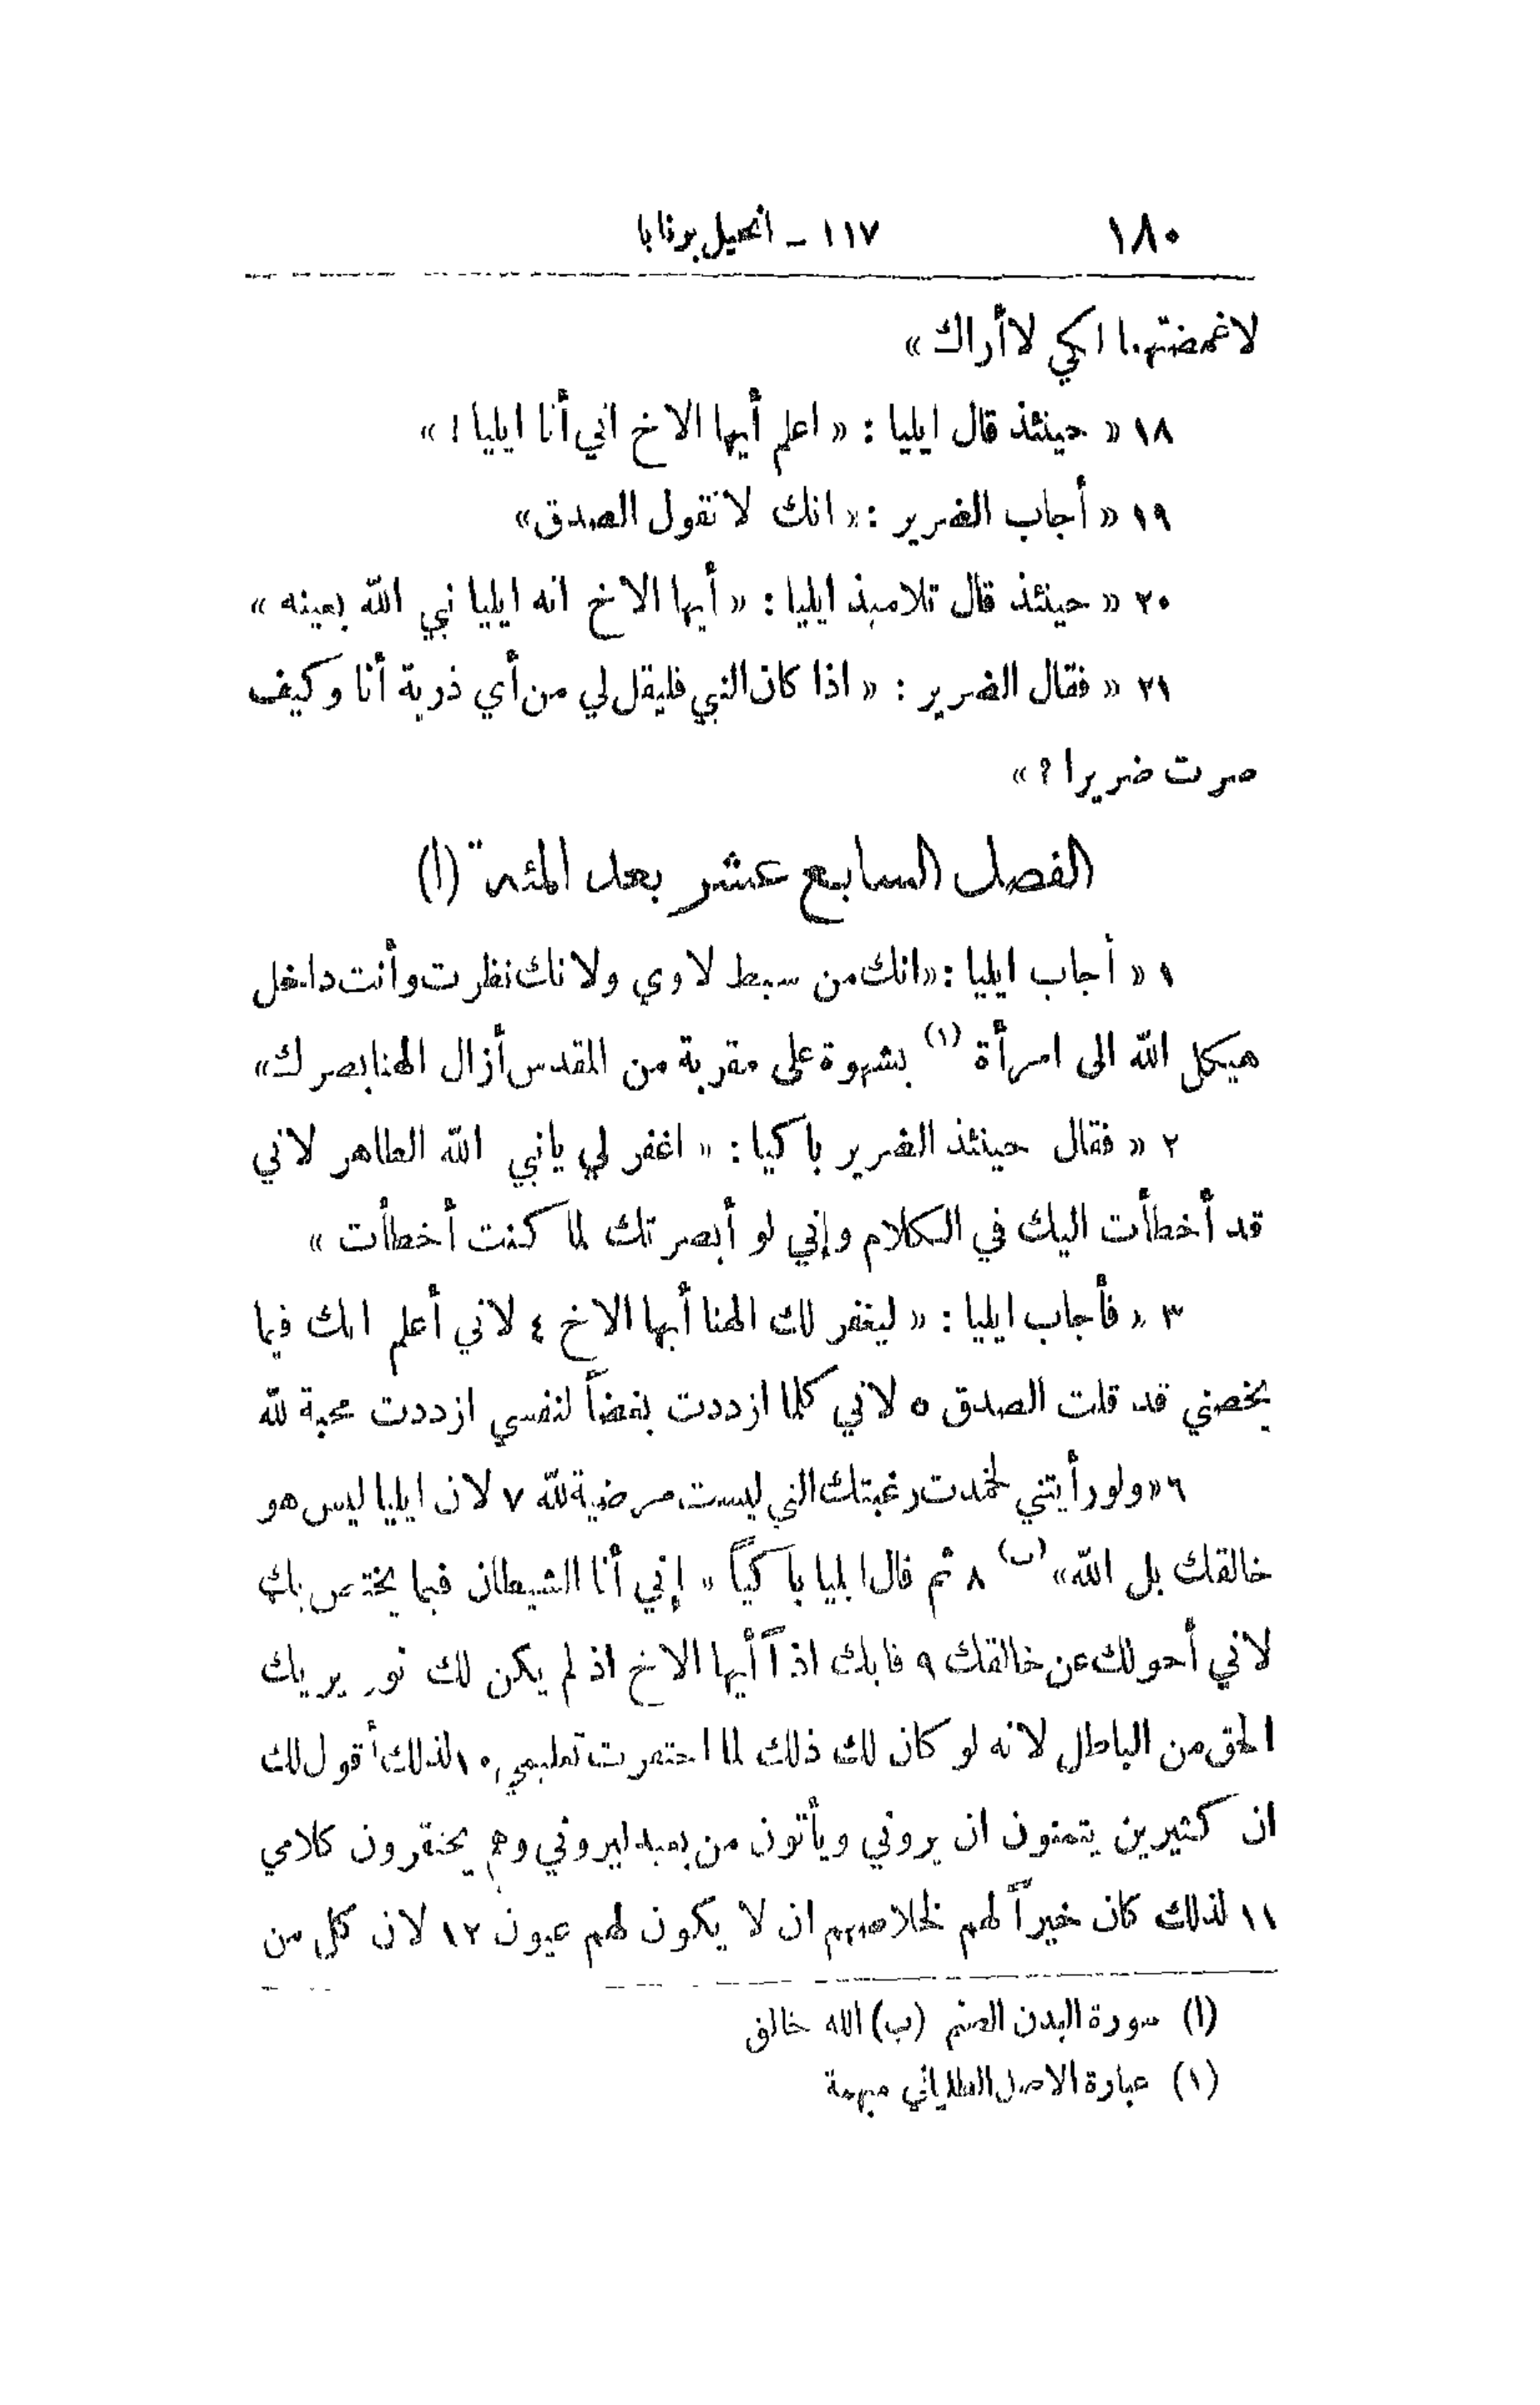 ١٨٠
١١٧ - انجيل برنابا
لاغمضتهما لكي لا أراك »
١٨ « حينئذ قال ايليا : « اعلم أيها الاخ اني أنا ايليا ! »
١٩ « أجاب الضرير : « انك لا تقول الصدق»
٢٠ « حينئذ قال تلاميذ ايليا : « أيها الاخ انه ايليا نبي الله بعينه »
٢١ « فقال الضرير : « اذا كان النبي فليقل لي من أي ذرية أنا وكيف
صرت ضريرا ؟ »
الفصل السابع عشر بعد المئة (أ)
١ « أجاب ايليا : «انك من سبط لاوي ولانك نظرت وأنت داخل
هيكل الله الى امرأة (١) بشهوة على مقربة من المقدس أزال الهنا بصرك»
٢ « فقال حينئذ الضرير باكيا : « اغفر لي يانبي الله الطاهر لاني
قد أخطأت اليك في الكلام وإني لو أبصرتك لما كنت أخطأت »
٣ « فأجاب ايليا : « ليغفر لك الهنا أيها الاخ ٤ لاني أعلم انك فيما
يخصني قد قلت الصدق ٥ لاني كلما ازددت بغضاً لنفسي ازددت محبة لله
٦ «ولو رأيتني لخمدت رغبتك التي ليست مرضية لله ٧ لان ايليا ليس هو
خالقك بل الله» (ب) ٨ ثم قال ايليا باكياً « إني أنا الشيطان فيما يختص بك
لاني أحولك عن خالقك ٩ فابك اذاً أيها الاخ اذ لم يكن لك نور يريك
الحق من الباطل لانه لو كان لك ذلك لما احتقرت تعليمي ١٠ لذلك أقول لك
ان كثيرين يتمنون ان يروني ويأتون من بعيد ليروني وهم يحتقرون كلامي
١١ لذلك كان خيراً لهم لخلاصهم ان لا يكون لهم عيون ١٢ لان كل من
(أ) سورة البدن الصنم (ب) الله خالق
(١) عبارة الاصل الطلياني مبهمة